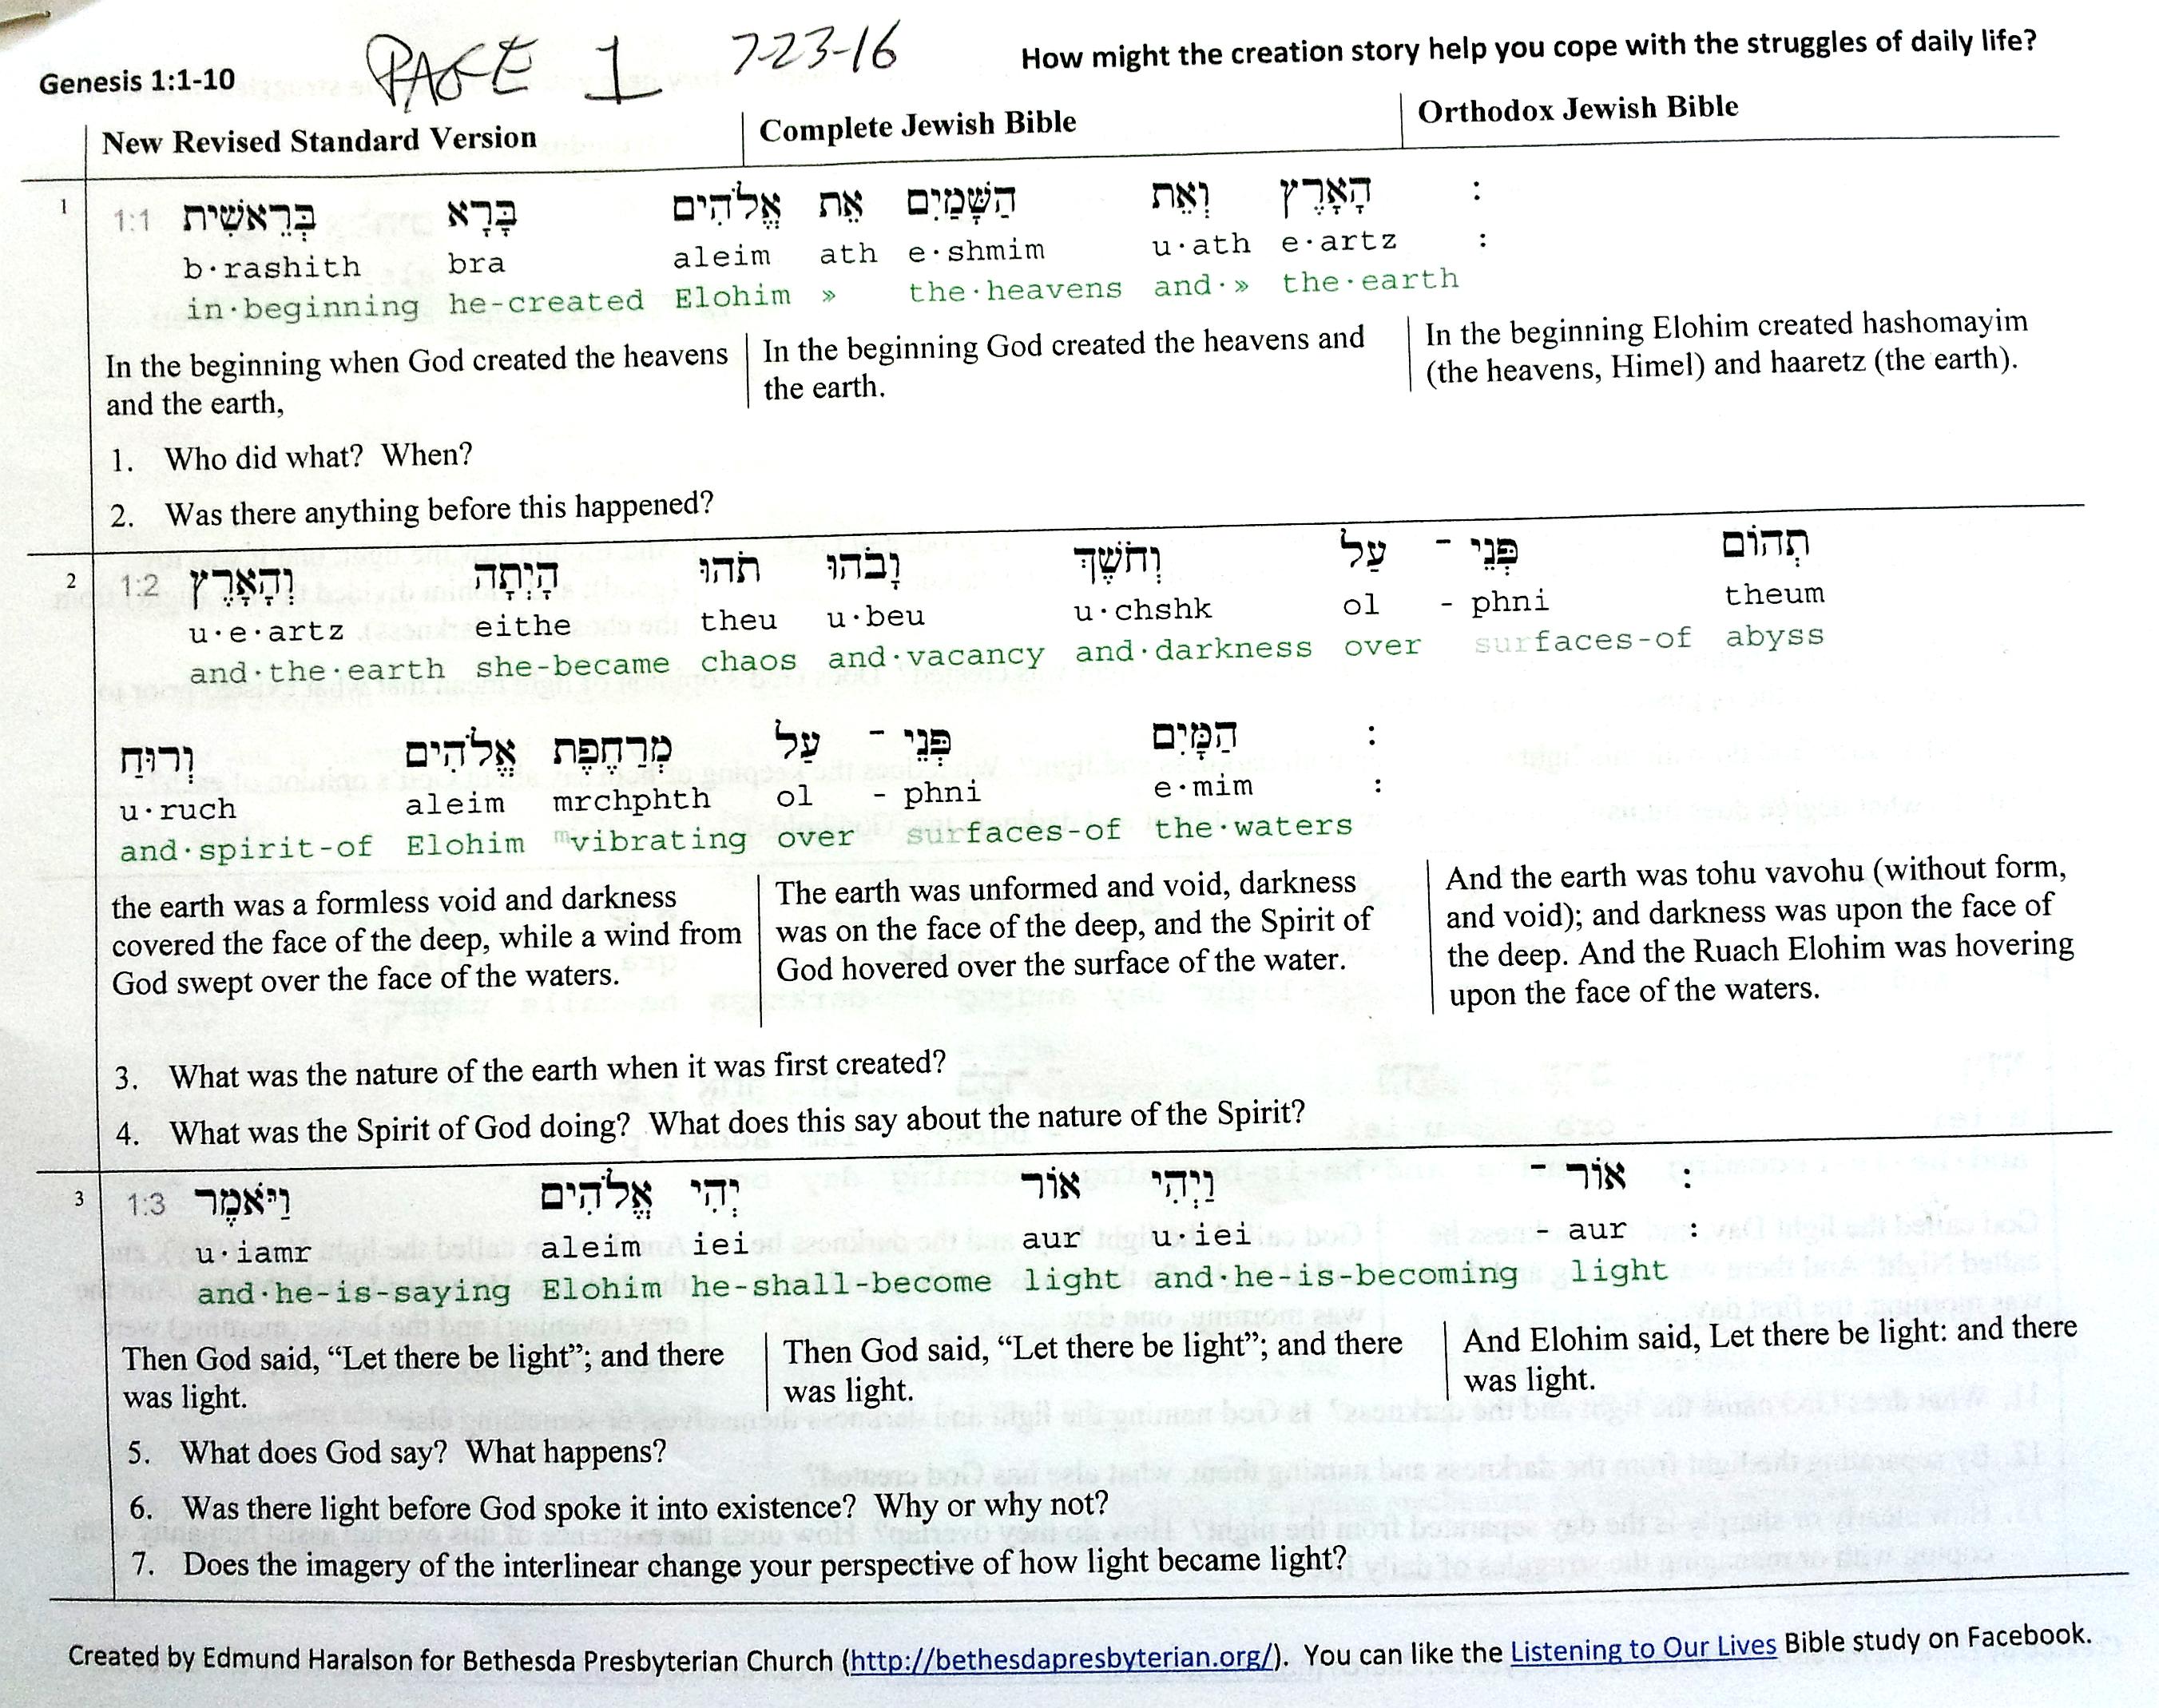 PAGE 1 7-23-16
Genesis 1:1-10 How might the creation story help you cope with the struggles of daily life?
New Revised Standard Version Complete Jewish Bible Orthodox Jewish Bible
1 1:1 בְּרֵאשִׁית בָּרָא אֱלֹהִים אֵת הַשָּׁמַיִם וְאֵת הָאָרֶץ :
b·rashith bra aleim ath e·shmim u·ath e·artz :
in·beginning he-created Elohim » the·heavens and·» the·earth
In the beginning when God created the heavens
and the earth,
In the beginning God created the heavens and
the earth.
In the beginning Elohim created hashomayim
(the heavens, Himel) and haaretz (the earth).
1. Who did what? When?
2. Was there anything before this happened?
2 1:2 וְהָאָרֶץ הָיְתָה תֹהוּ וָבֹהוּ וְחֹשֶׁךְ עַל - פְּנֵי תְהוֹם
u·e·artz eithe theu u·beu u·chshk ol - phni theum
and·the·earth she-became chaos and·vacancy and·darkness over surfaces-of abyss
וְרוּחַ אֱלֹהִים מְרַחֶפֶת עַל - פְּנֵי הַמָּיִם :
u·ruch aleim mrchphth ol - phni e·mim :
and·spirit-of Elohim mvibrating over surfaces-of the·waters
the earth was a formless void and darkness
covered the face of the deep, while a wind from
God swept over the face of the waters.
The earth was unformed and void, darkness
was on the face of the deep, and the Spirit of
God hovered over the surface of the water.
And the earth was tohu vavohu (without form,
and void); and darkness was upon the face of
the deep. And the Ruach Elohim was hovering
upon the face of the waters.
3. What was the nature of the earth when it was first created?
4. What was the Spirit of God doing? What does this say about the nature of the Spirit?
3 1:3 וַיֹּאמֶר אֱלֹהִים יְהִי אוֹר וַיְהִי - אוֹר :
u·iamr aleim iei aur u·iei - aur :
and·he-is-saying Elohim he-shall-become light and·he-is-becoming light
Then God said, “Let there be light”; and there
was light.
Then God said, “Let there be light”; and there
was light.
And Elohim said, Let there be light: and there
was light.
5. What does God say? What happens?
6. Was there light before God spoke it into existence? Why or why not?
7. Does the imagery of the interlinear change your perspective of how light became light?
Created by Edmund Haralson for Bethesda Presbyterian Church (http://bethesdapresbyterian.org/). You can like the Listening to Our Lives Bible study on Facebook.